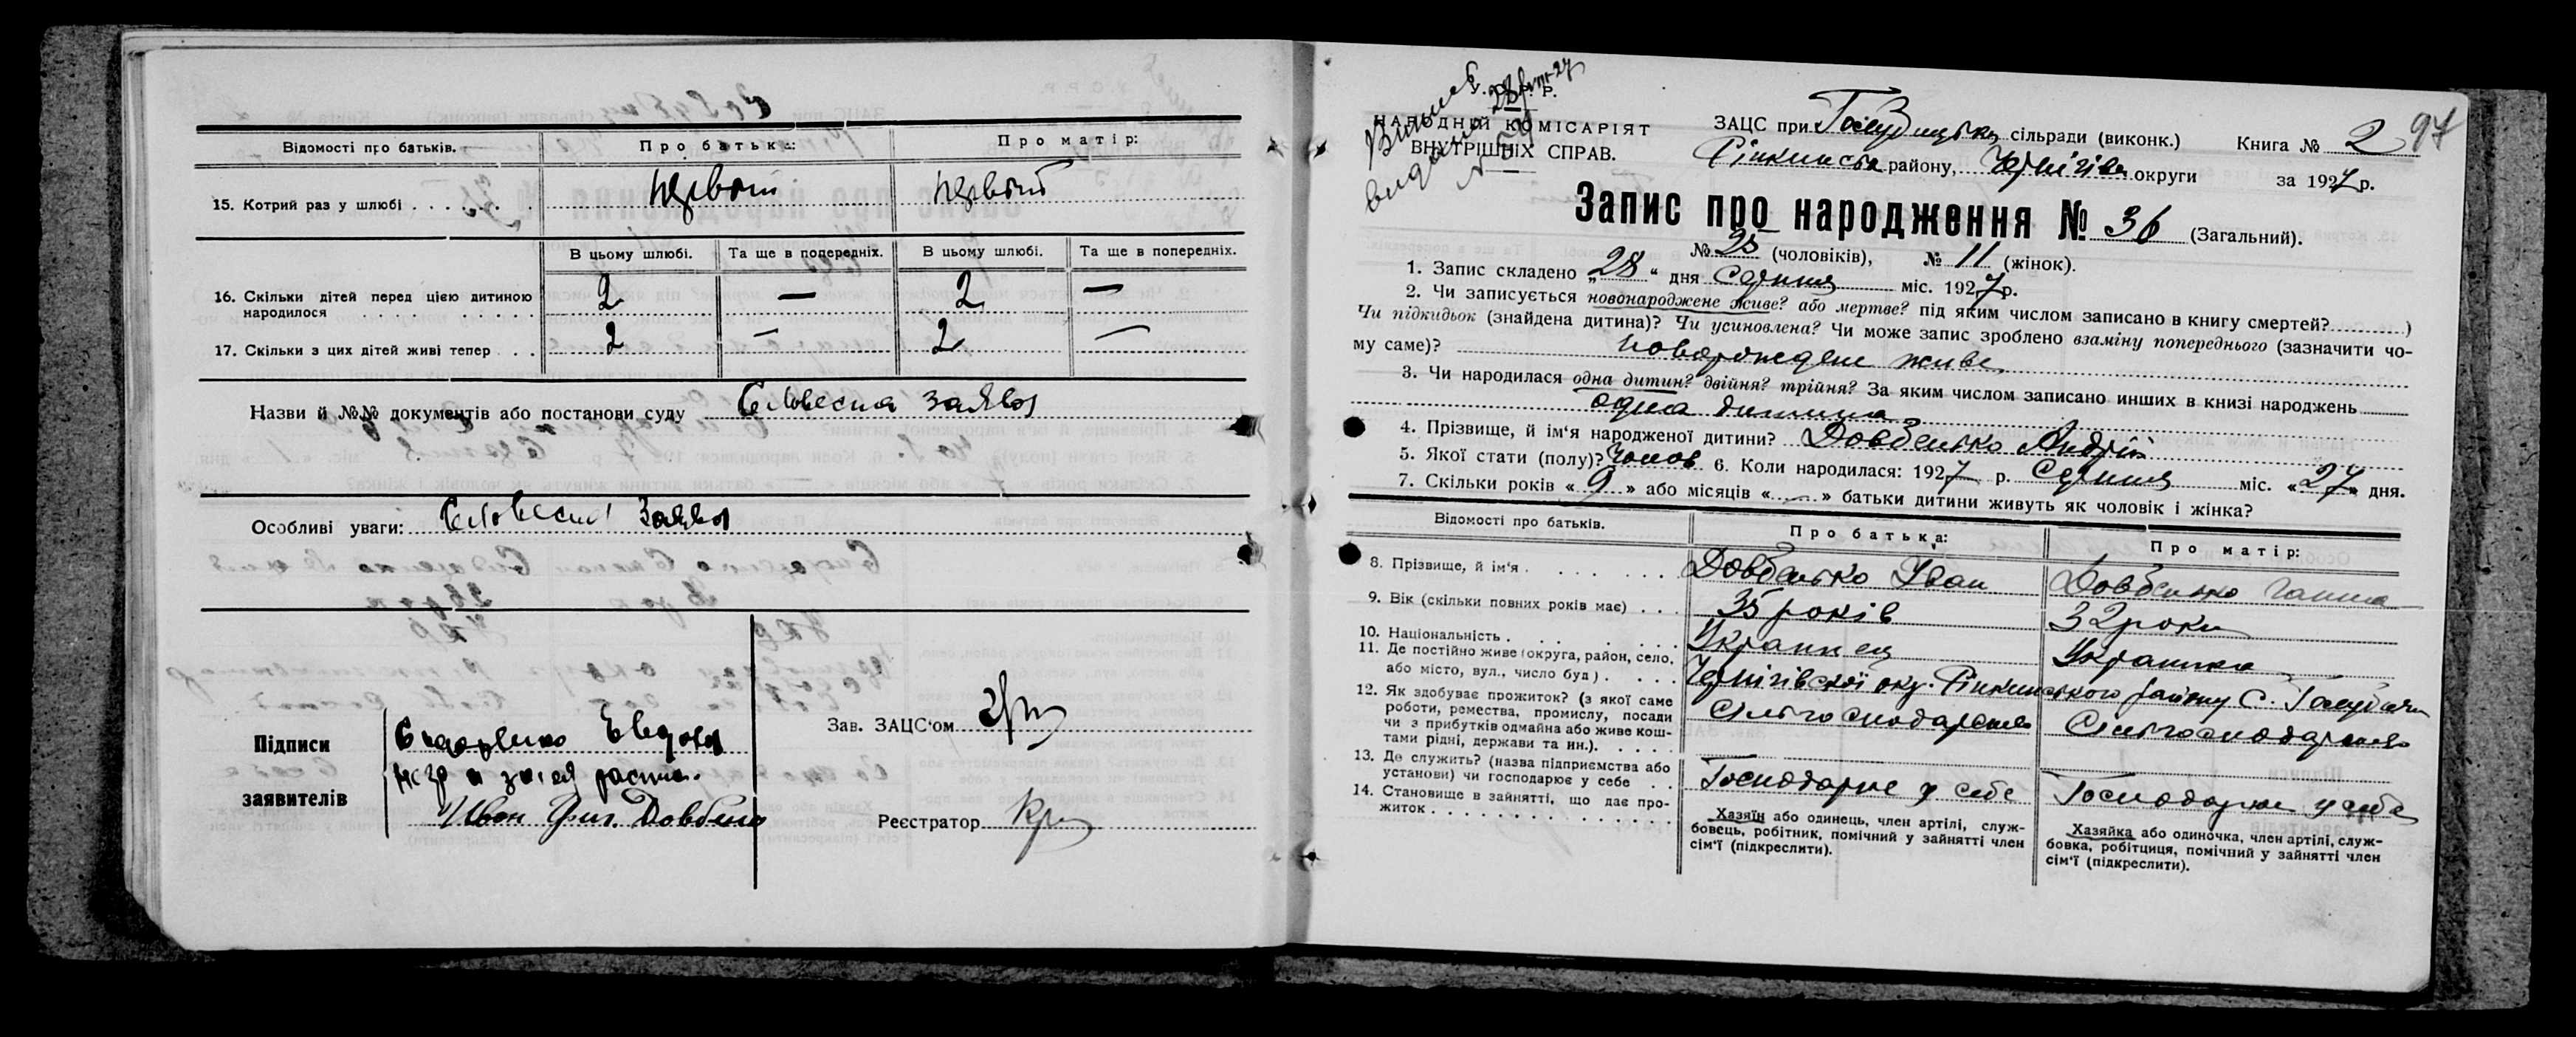 Відомості про батьків.
Про батька:
Про матір:
15. Котрий раз у шлюбі . . . . . . .
первый
первый
В цьому шлюбі.
Та ще в попередніх.
В цьому шлюбі.
Та ще в попередніх.
16. Скільки дітей перед цією дитиною народилося . . . . . .
2 — 2 —
17. Скільки з цих дітей живі тепер . . .
2 — 2 —
Назви й №№ документів або постанови суду Словесна заява
Особливі уваги: Словесна заява
Підписи заявителів
Иван Григ. Довбенко
Зав. ЗАЦС‘ом
Реєстратор
97
У. С. Р. Р.
НАРОДНІЙ КОМІСАРІЯТ
ВНУТРІШНІХ СПРАВ.
ЗАЦС при сільради (виконк.) Книга № 2
Ріпкинськ району, Чернігів округи за 1927 р.
Запис про народження № 36 (Загальний).
№ 25 (чоловіків), № 11 (жінок).
1. Запис складено „28“ дня Серпня міс. 1927 р.
2. Чи записується новонароджене живе? або мертве? під яким числом записано в книгу смертей? )
Чи підкидьок (знайдена дитина)? Чи усиновлена? Чи може запис зроблено взаміну попереднього (зазначити чо-
му саме)? живе
3. Чи народилася одна дитин? двійня? трійня? За яким числом записано инших в книзі народжень
одна дитина
4. Прізвище, й ім‘я народженої дитини? Довбенько Андрій
5. Якої стати (полу)? Чолов 6. Коли народилася: 1927 р. Серпня міс. «27» дня.
7. Скільки років «9» або місяців «—» батьки дитини живуть як чоловік і жінка?
Відомості про батьків.
Про батька:
Про матір:
8. Прізвище, й ім‘я . . . . . . .
Довбенько Іван
Довбенько Ганна
9. Вік (скільки повних років має) . . .
35 років
32 роки
10. Національність . . . . . . .
Українец
Українка
11. Де постійно живе (округа, район, село,
або місто, вул., число буд). . . . .
Чернігівської окр. Ріпкинського району С.
12. Як здобуває прожиток? (з якої саме
роботи, ремества, промислу, посади
чи з прибутків одмайна або живе кош-
тами рідні, держави та ин.). . . . .
13. Де служить? (назва підприємства або
установи) чи господарює у себе . .
Господарює у себе
Господарює у себе
14. Становище в зайнятті, що дає про-
житок . . . . . . . . . . . . . .
Хазяїн або одинець, член артілі, служ-
бовець, робітник, помічний у зайнятті член
сім‘ї (підкреслити).
Хазяйка або одиночка, член артілі, служ-
бовка, робітциця, помічний у зайнятті член
сім‘ї (підкреслити).